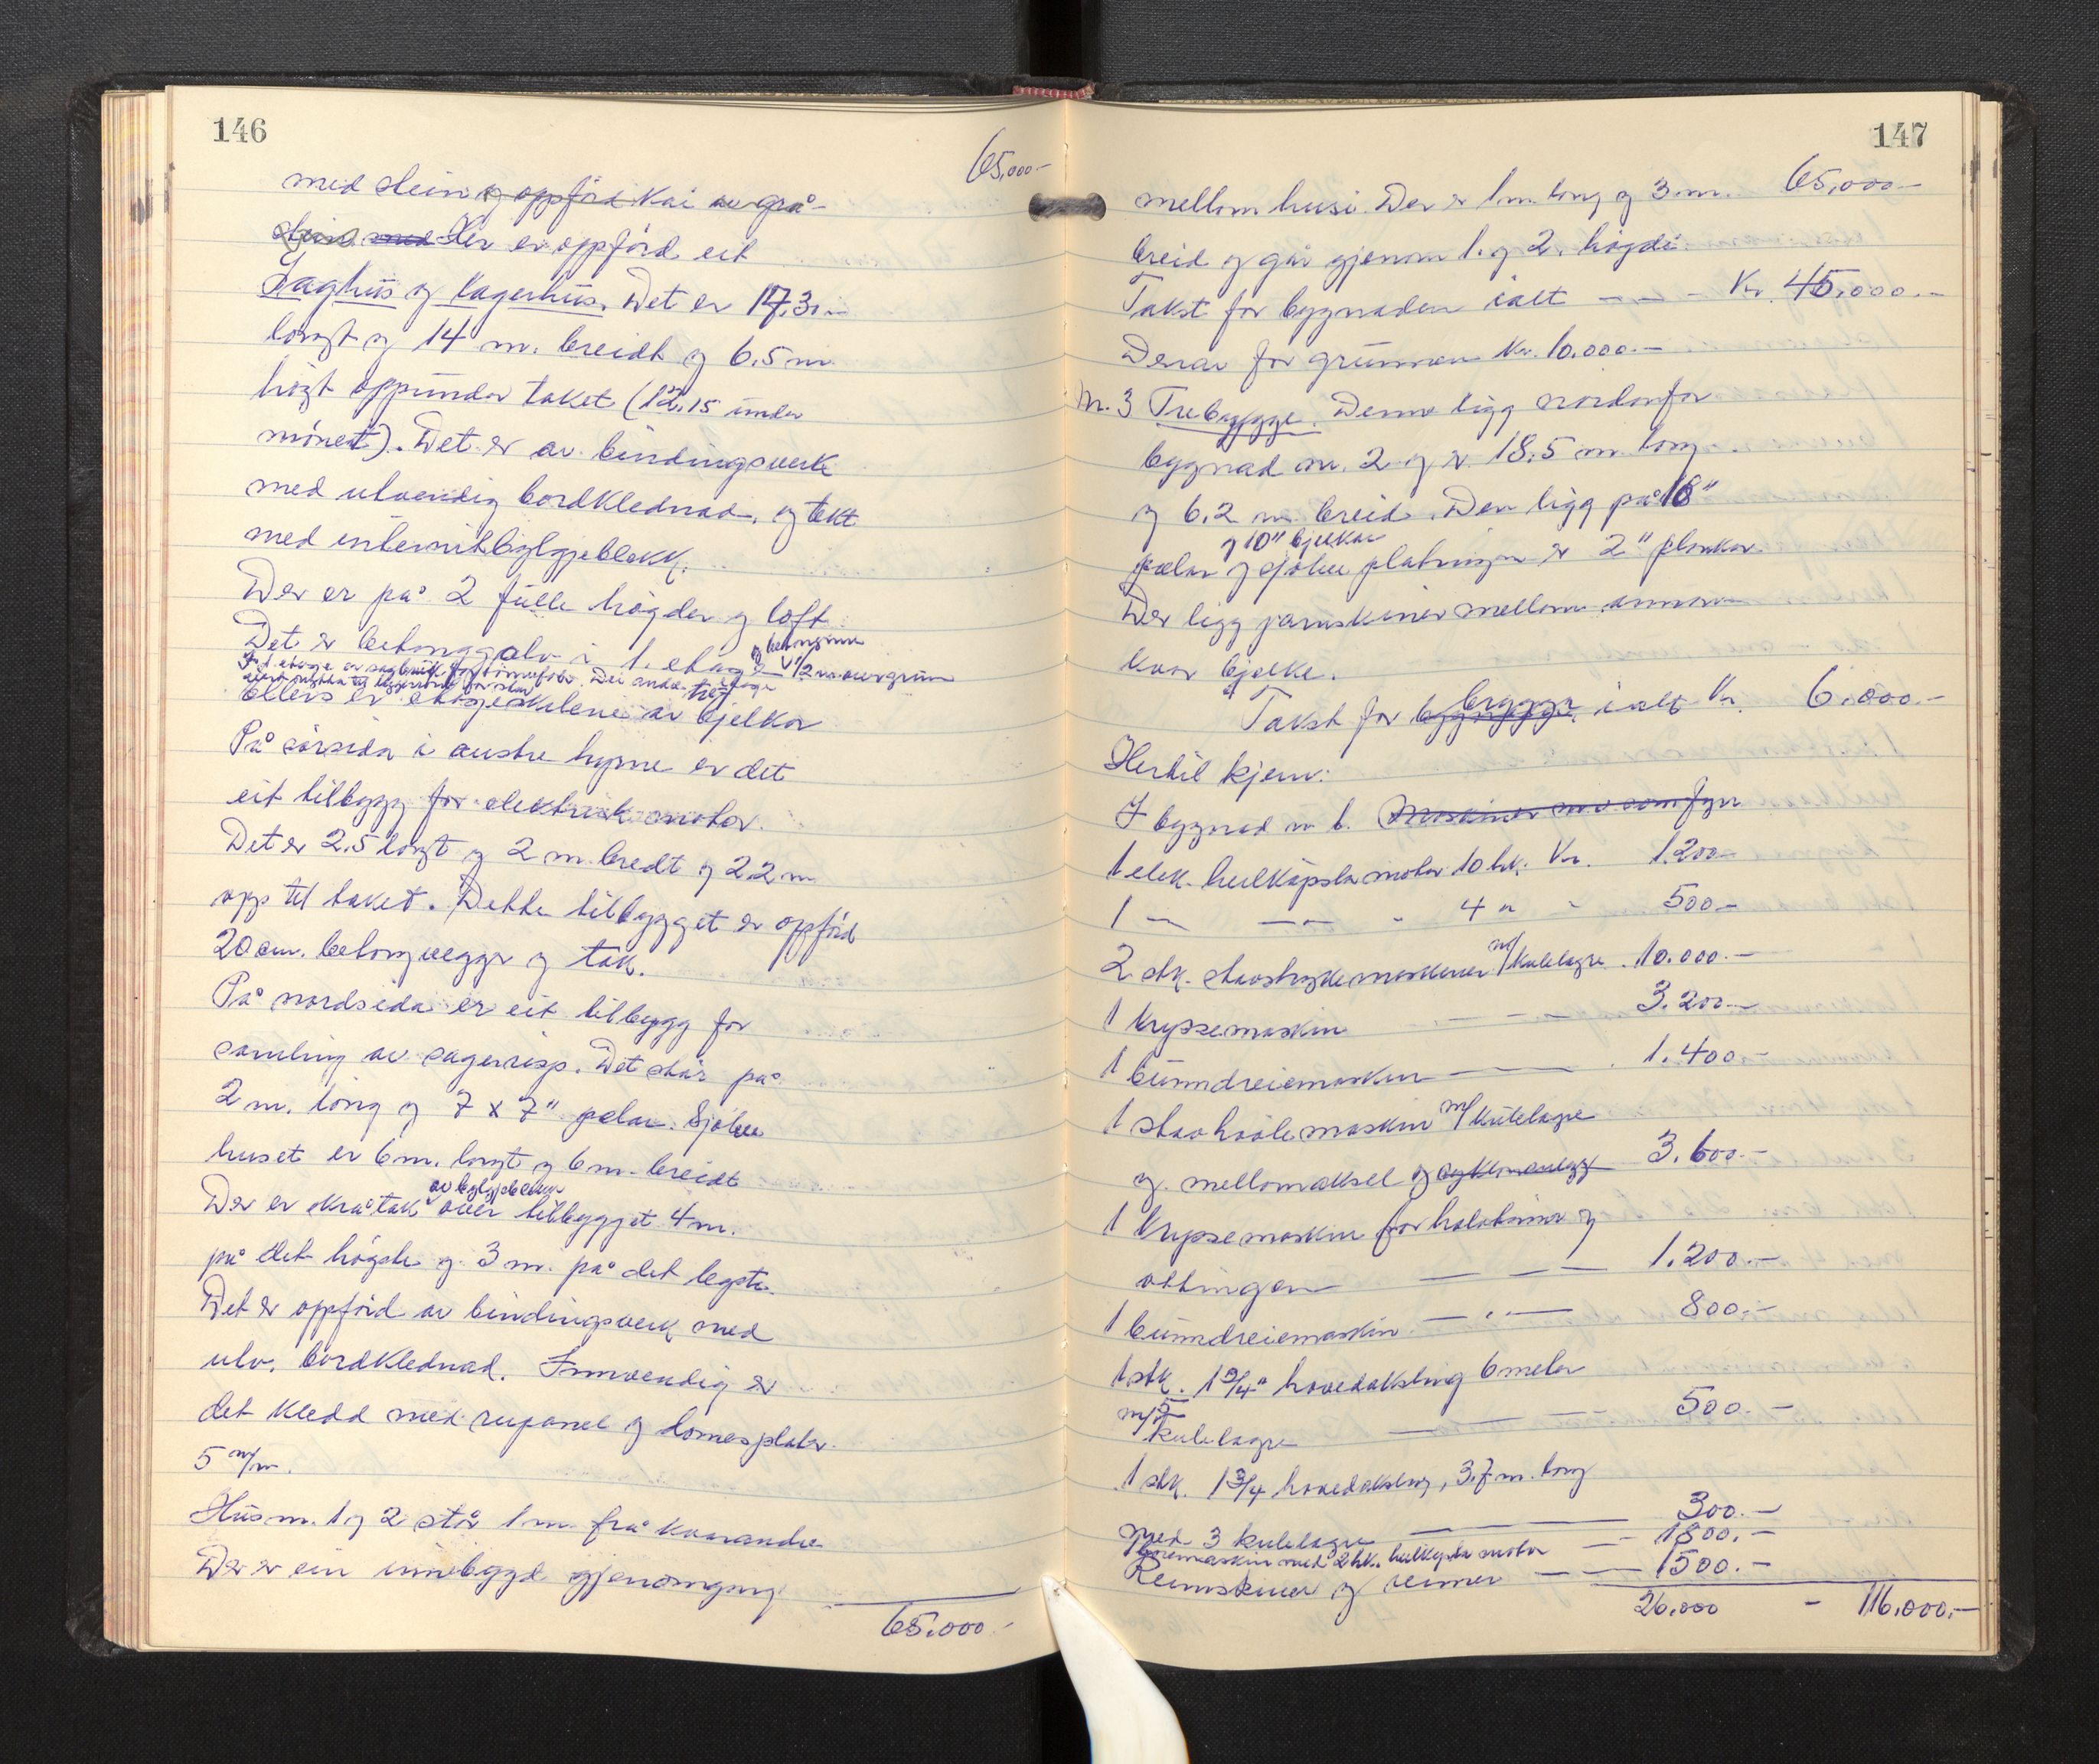 146
65,000.-
med stein og oppförd kai av grå-
stein med Her er oppförd eit
Saghus og lagerhus. Det er 17,30 m
langt og 14 m. breidt og 6.5 m
högt oppunder taket (12,15 under
mönet). Det er av bindingsverk
med utvendig bordklednad, og tekt
med internitbylgjeblekk.
Der er på 2 fulle högder og loft
Det er betonggolv i 1. etasje og betongmur
1/2 m over grunn
Ellers er etasjeskilene av tre bjelkar
På sörsida i austre hyrne er det
eit tilbygg for elektrisk motor.
Det er 2.5 langt og 2 m. bredt og 2.2 m
opp til taket. Dette tilbygget er oppförd
20 cm. betongvegger og tak.
På nordsida er eit tilbygg for
samling av sagerisp. Det står på
2 m. lang og 7 x 7" pelar. Sjölve
huset er 6 m. langt og 6 m. breidt
av bylgjeblekk
Der er skråtak over tilbygget 4 m.
på det högste og 3 m. på det legste.
Det er oppförd av bindingsverk med
utv. bordklednad. Innvendig er
det kledd med rupanel og tomesplater
5 m/m.
Hus nr. 1 og 2 står 1 m frå kvarandre
Der er ein innebygd gjenomgang
65.000.-
147
mellom husi. Den er 1 m. lang og 3 m. 65,000.-
breid og går gjenom 1. og 2. högdi.
Takst for bygnaden ialt - - - Kr. 45,000.-
Derav for grunnen Kr. 10.000.-
Nr. 3 Trebrygge. Denne ligg nordanfor
bygnad nr. 2 og er 18.5 m lang
og 6.2 m. breid. Den ligg på 18"
og 10" bjelkar
pelar og sjölve platningen er 2" plankar.
Der ligg jarnskiner mellom annan-
kvar bjelke.
Takst for brygga ialt Kr. 6.000.-
Hertil kjem:
I bygnad nr. 1. Maskiner
1 elek. heilkapsla motor 10 hk. Kr. 1.200.-
1 — — - 4 " - 500.-
2 stk. stavstrykemaskiner m/kulelagre. 10.000.-
1 krypsemaskin - - - 3.200.-
1 bunndreiemaskin — — 1.400.-
1 stavhövlemaskin m/kulelagre
og mellomaksel og syklonanlegg 3.600.-
1 krypsemaskin for halvtönner og
ottingar — — — 1.200.-
1 bunndreiemaskin — — 800.-
1 stk. 1 3/4" hovedaksling 6 meter
m/5 kulelagre — — — 500.-
1 stk. 1 3/4 hovedaksling, 3.7 m. lang
med 3 kulelagre — 300.-
maskin med 2 hk. heilkapsla motor — 1800.-
Reimskiver og reimer — — 1500.-
26.000 - 116.000.-